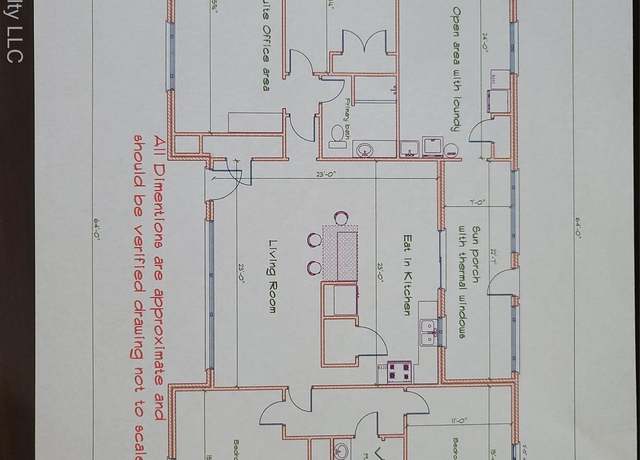 lty LLC
64'-0"
All Dimentions are approximate and
should be verified drawing not to scale
Suite Office area
Open area with loundy
24'-0"
Primary bath
23'-0"
7'-0"
Sun porch
with thermal windows
22'-7"
64'-0"
Living Room
23'-0"
Eat in Kitchen
23'-0"
11'-0"
Bedro
Bedro